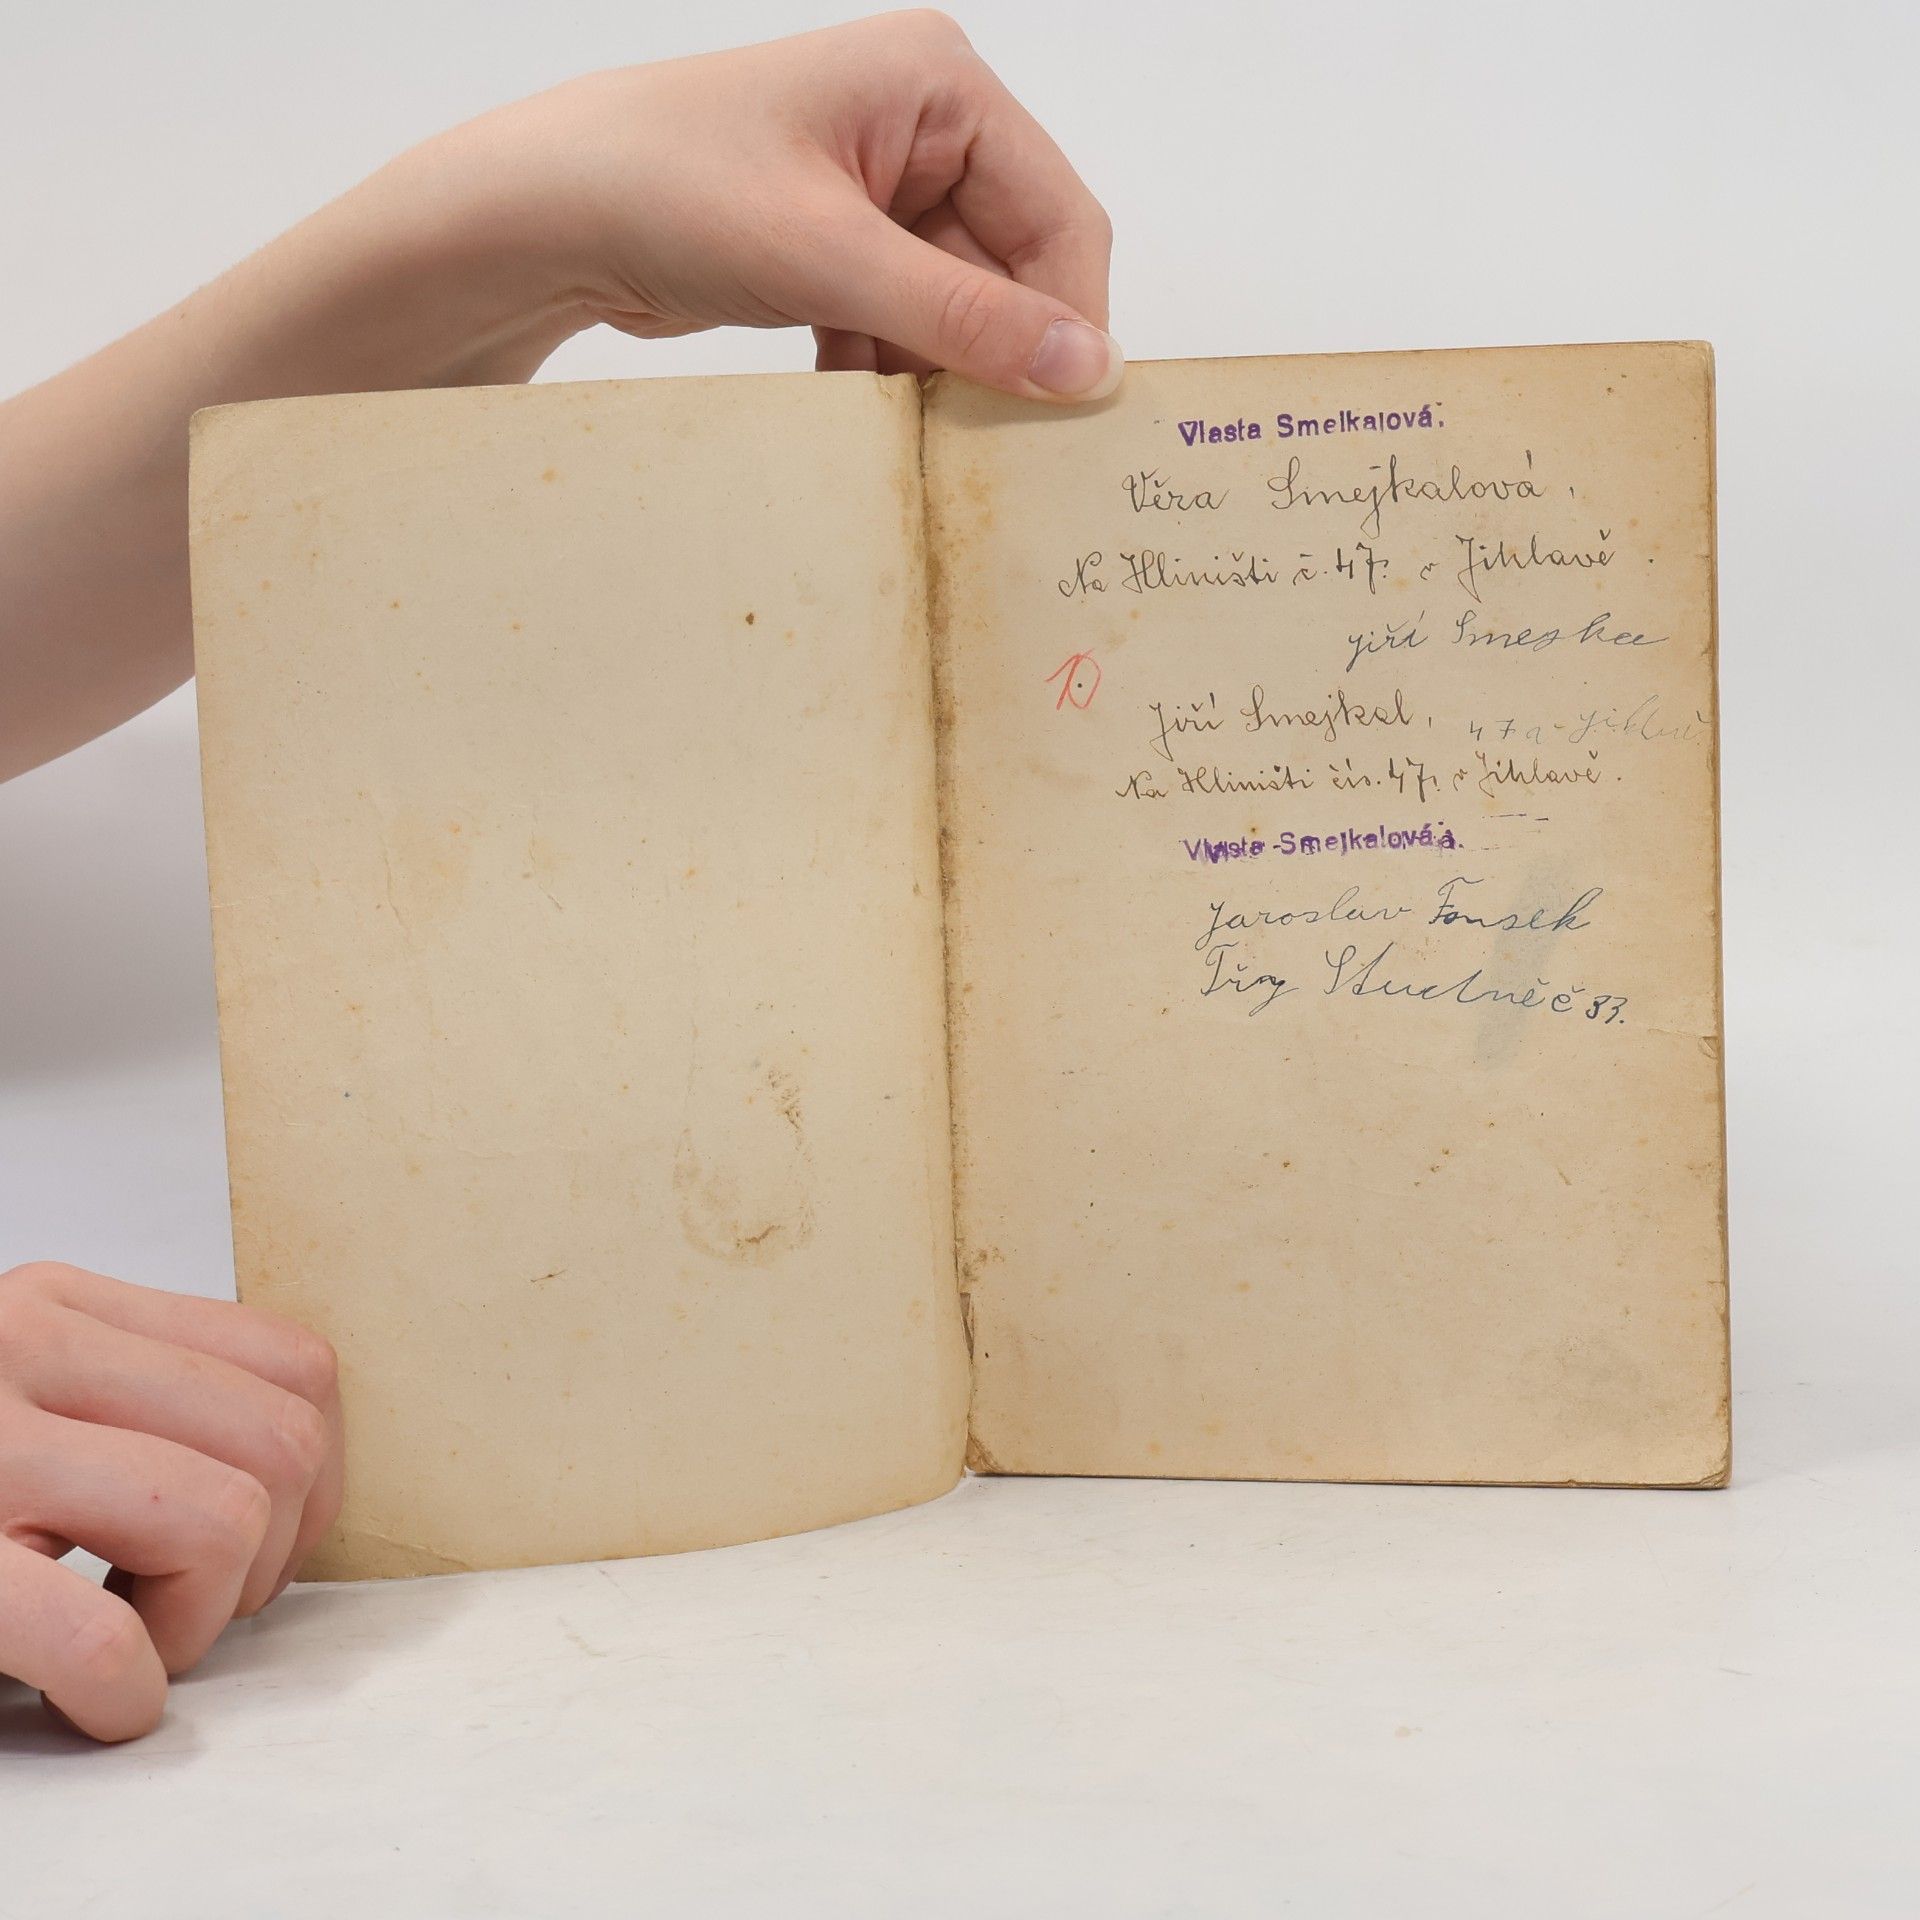 Vlasta Smejkalová.
Věra Smejkalová,
Na Hliništi č. 47. v Jihlavě.
Jiří Smejka
Jiří Smejkal, 47 a - Jihlav
Na Hliništi čís. 47. v Jihlavě.
Vlasta Smejkalová.
Jaroslav
Studně č 33.